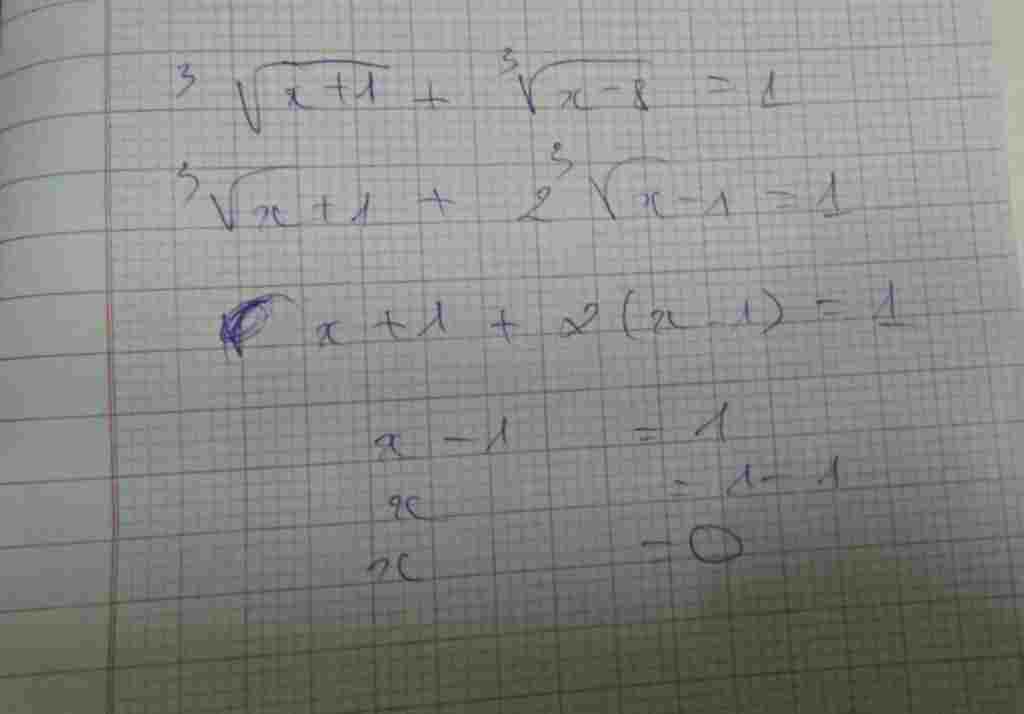 ³√(x+1) + ³√(x-8) = 1
³√x+1 + 2 ³√x-1 = 1
x + 1 + 2(x-1) = 1
x - 1 = 1
x = 1 - 1
x = 0